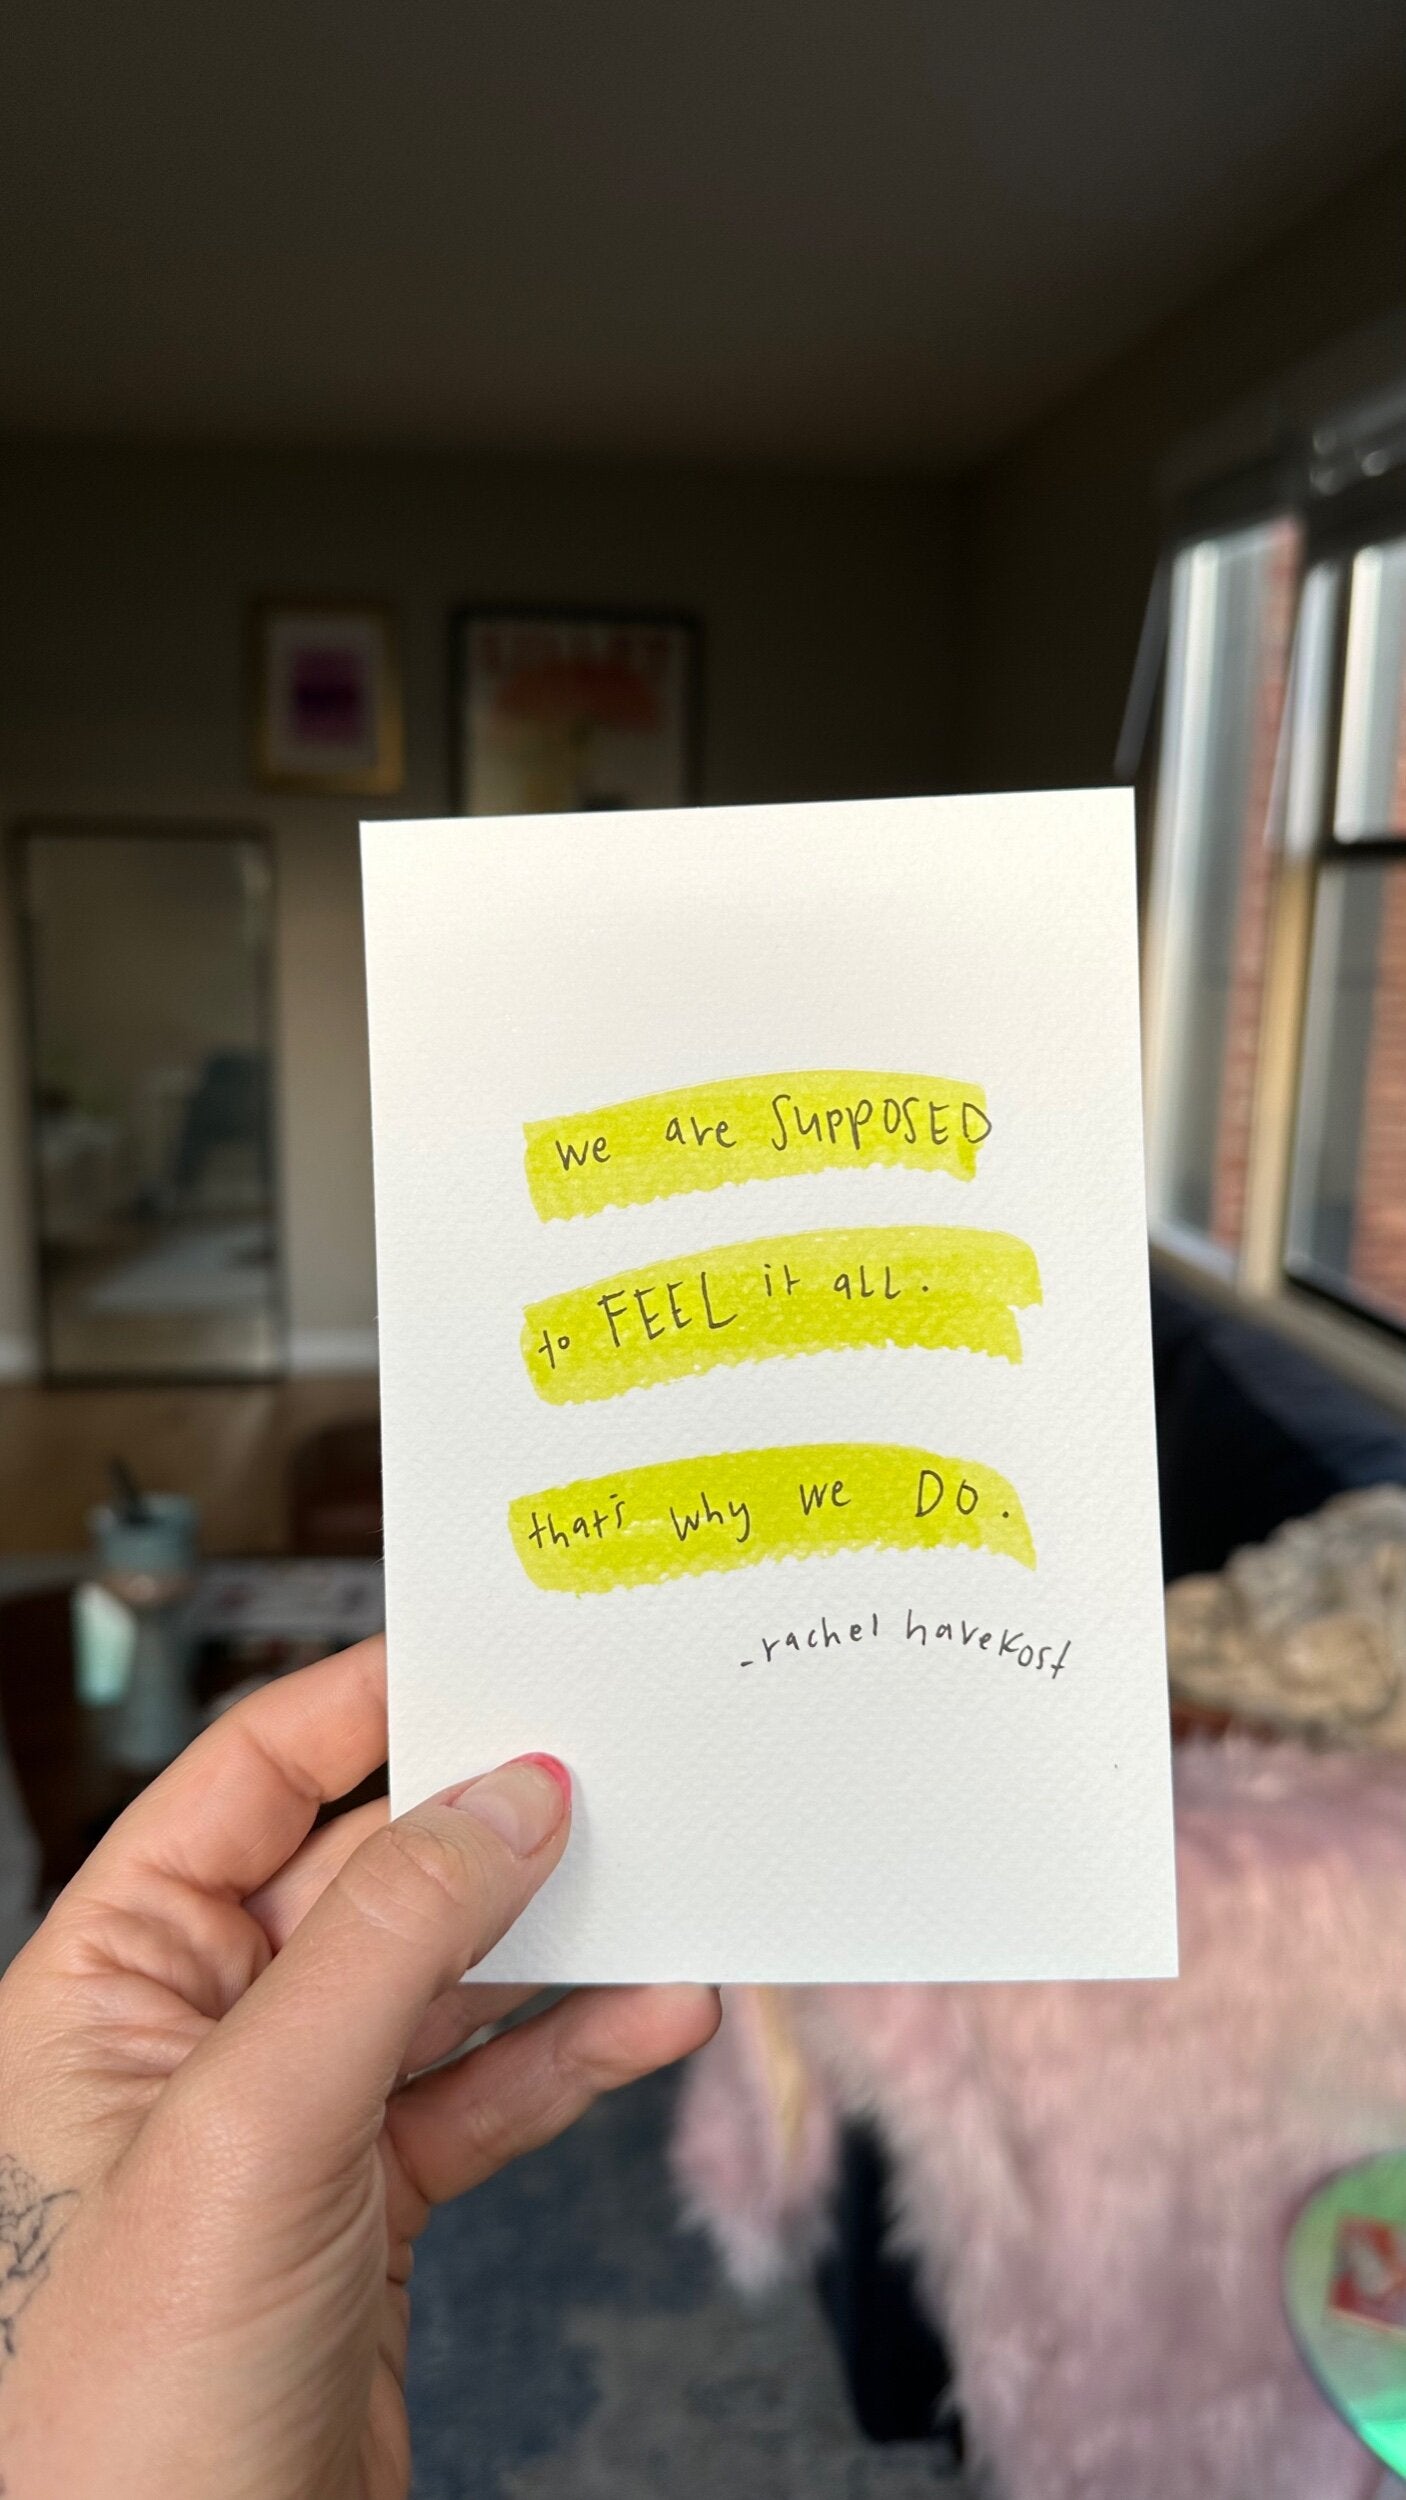 we are SUPPOSED
to FEEL it all.
that's why we DO.
-rachel havekost